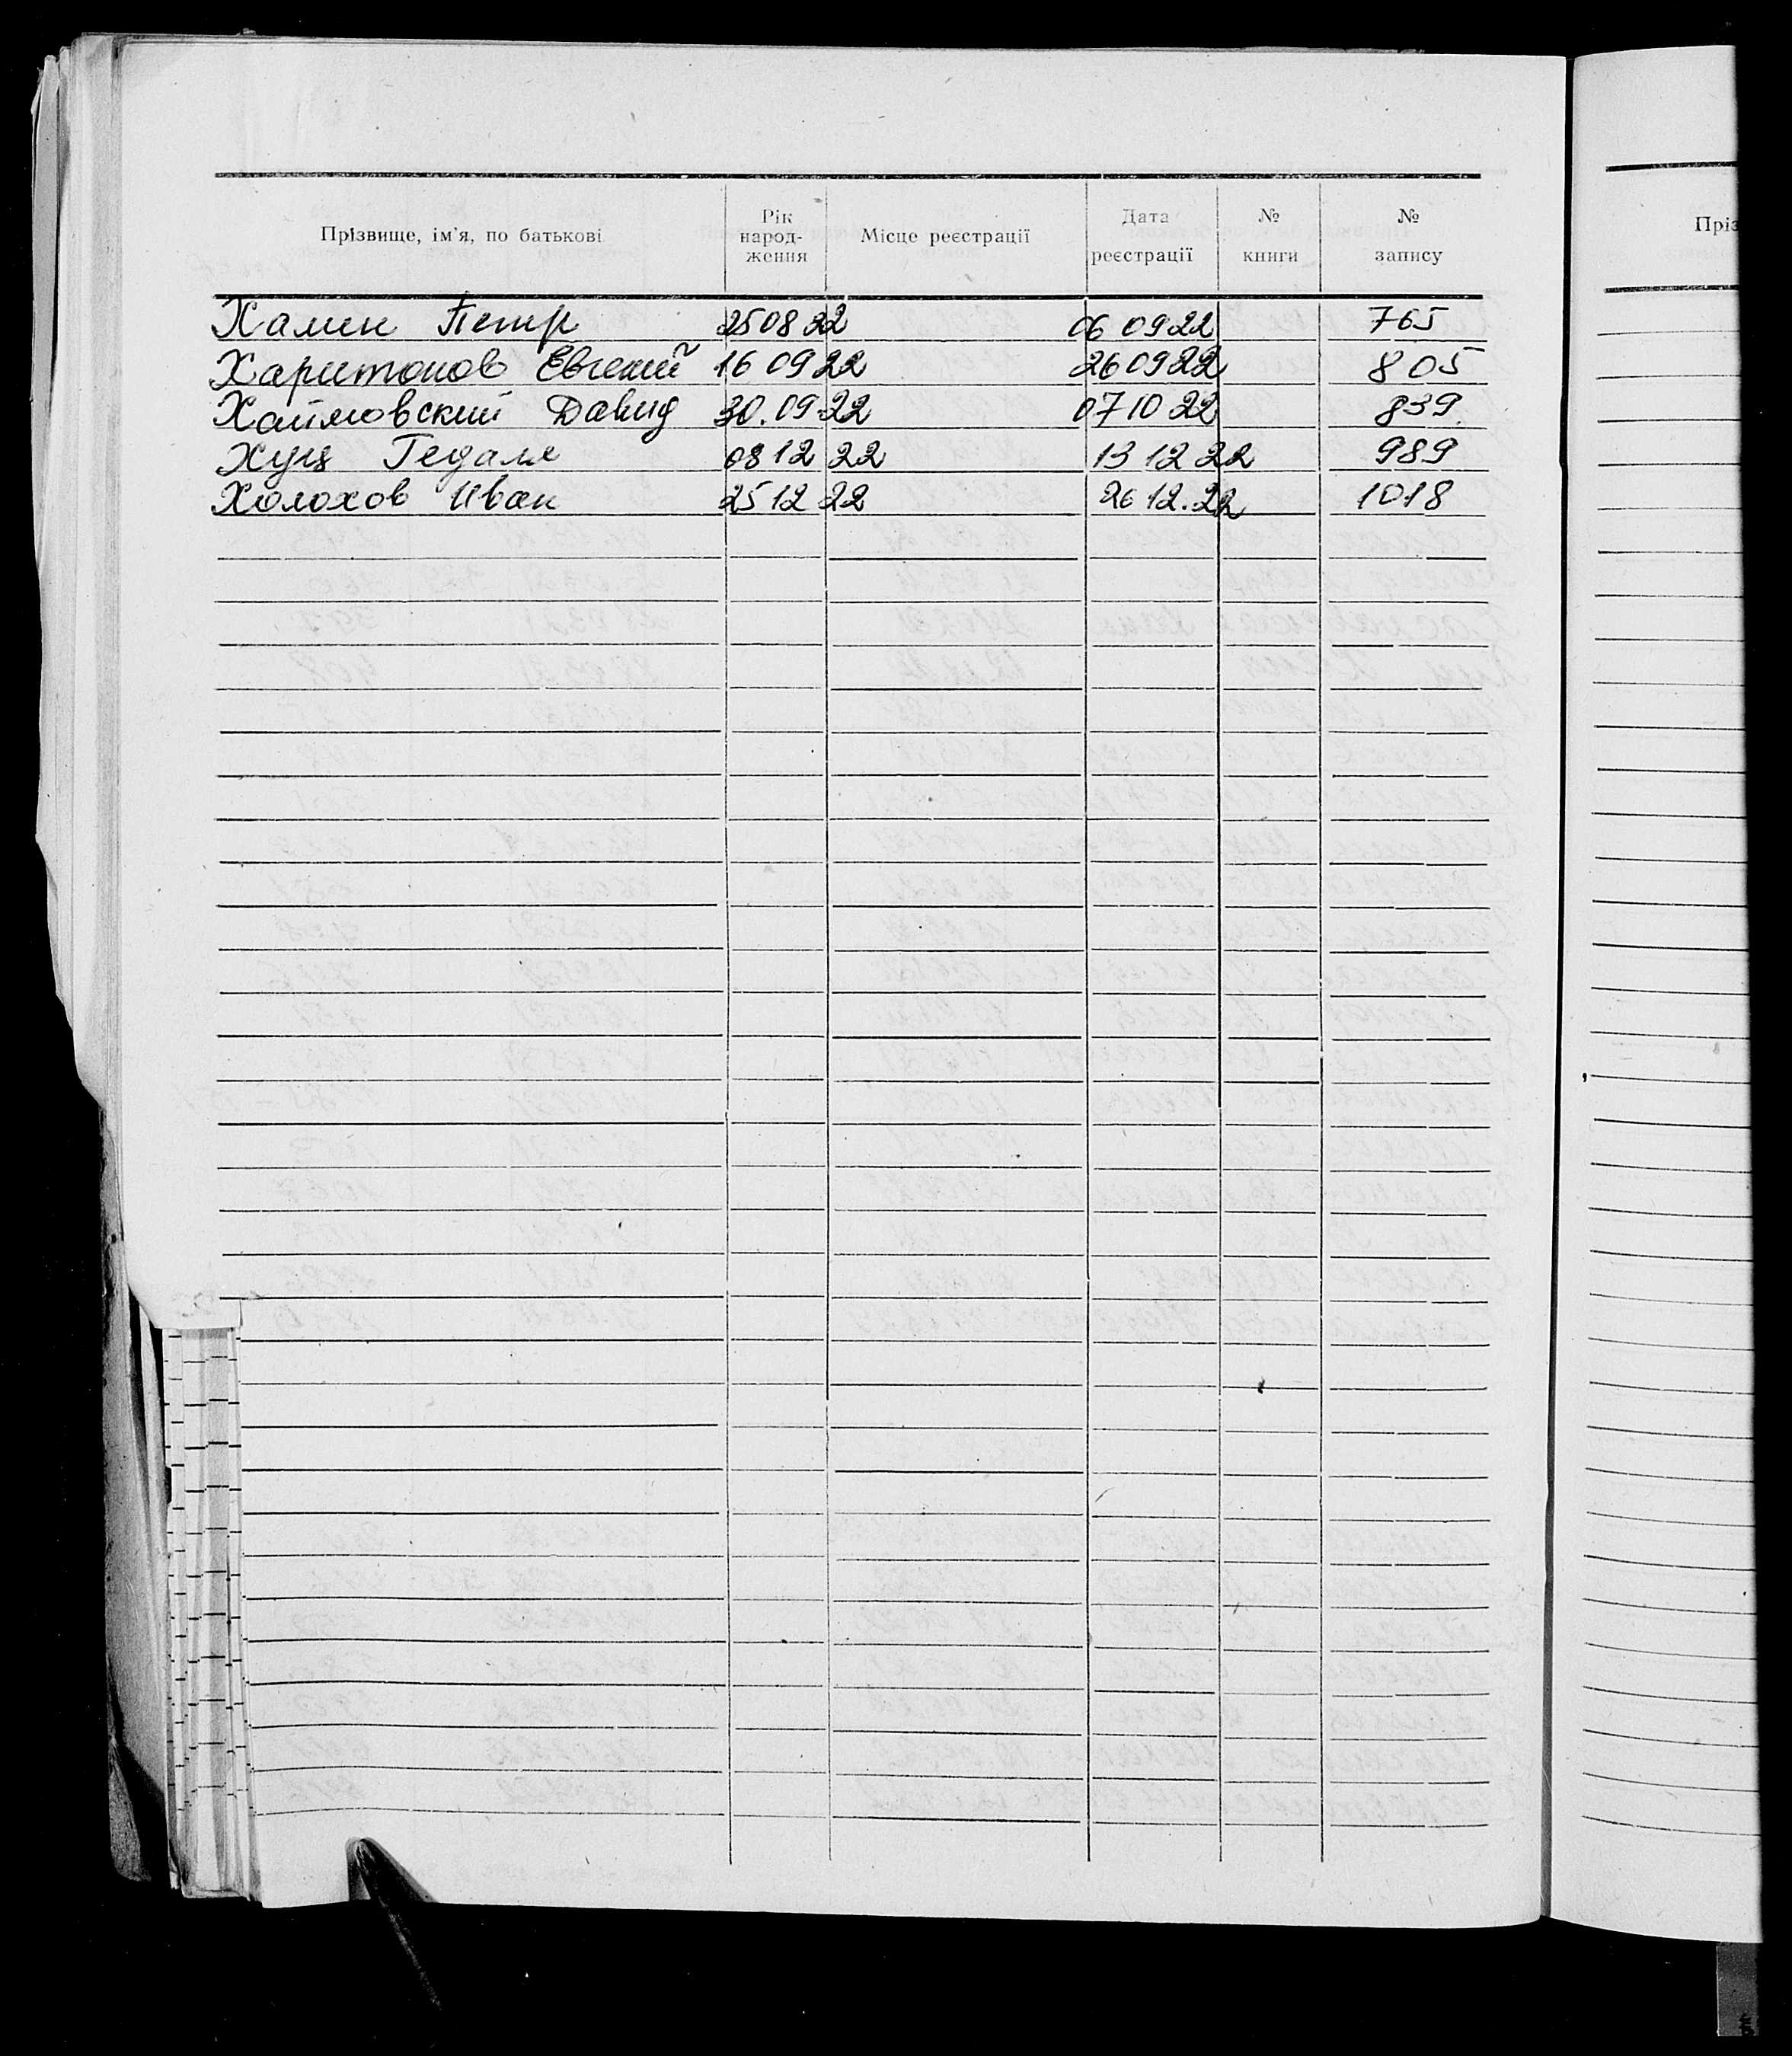 Прізвище, ім'я, по батькові Рік народ-ження Місце реєстрації Дата реєстрації № книги № запису
Хамен Петр 25 08 22 06 09 22 765
Харитонов Евгений 16 09 22 26 09 22 805
Хаймовский Давид 30.09.22 07 10 22 839.
Хуц Гедале 08 12 22 13 12 22 989
Холохов Иван 25 12 22 26 12.22 1018
Пріз